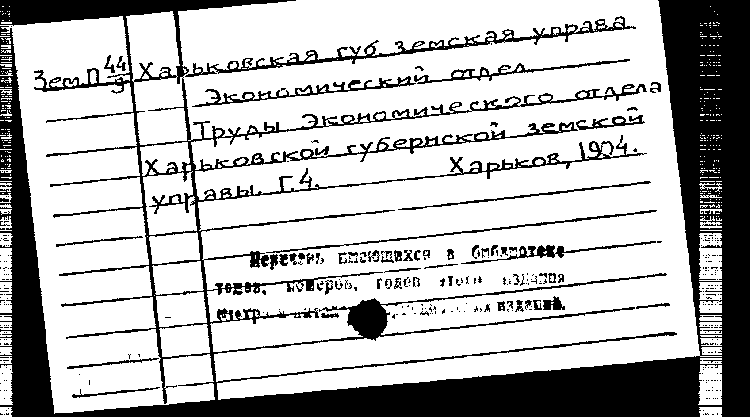 Зем.П 44/9 Харьковская губ. земская управа
Экономический отдел
Труды Экономического отдела
Харьковской губернской земской
управы. Г.4. Харьков, 1904.
Перечень имеющихся в библиотеке
томов, номеров, годов этого издания
смотри изданий.